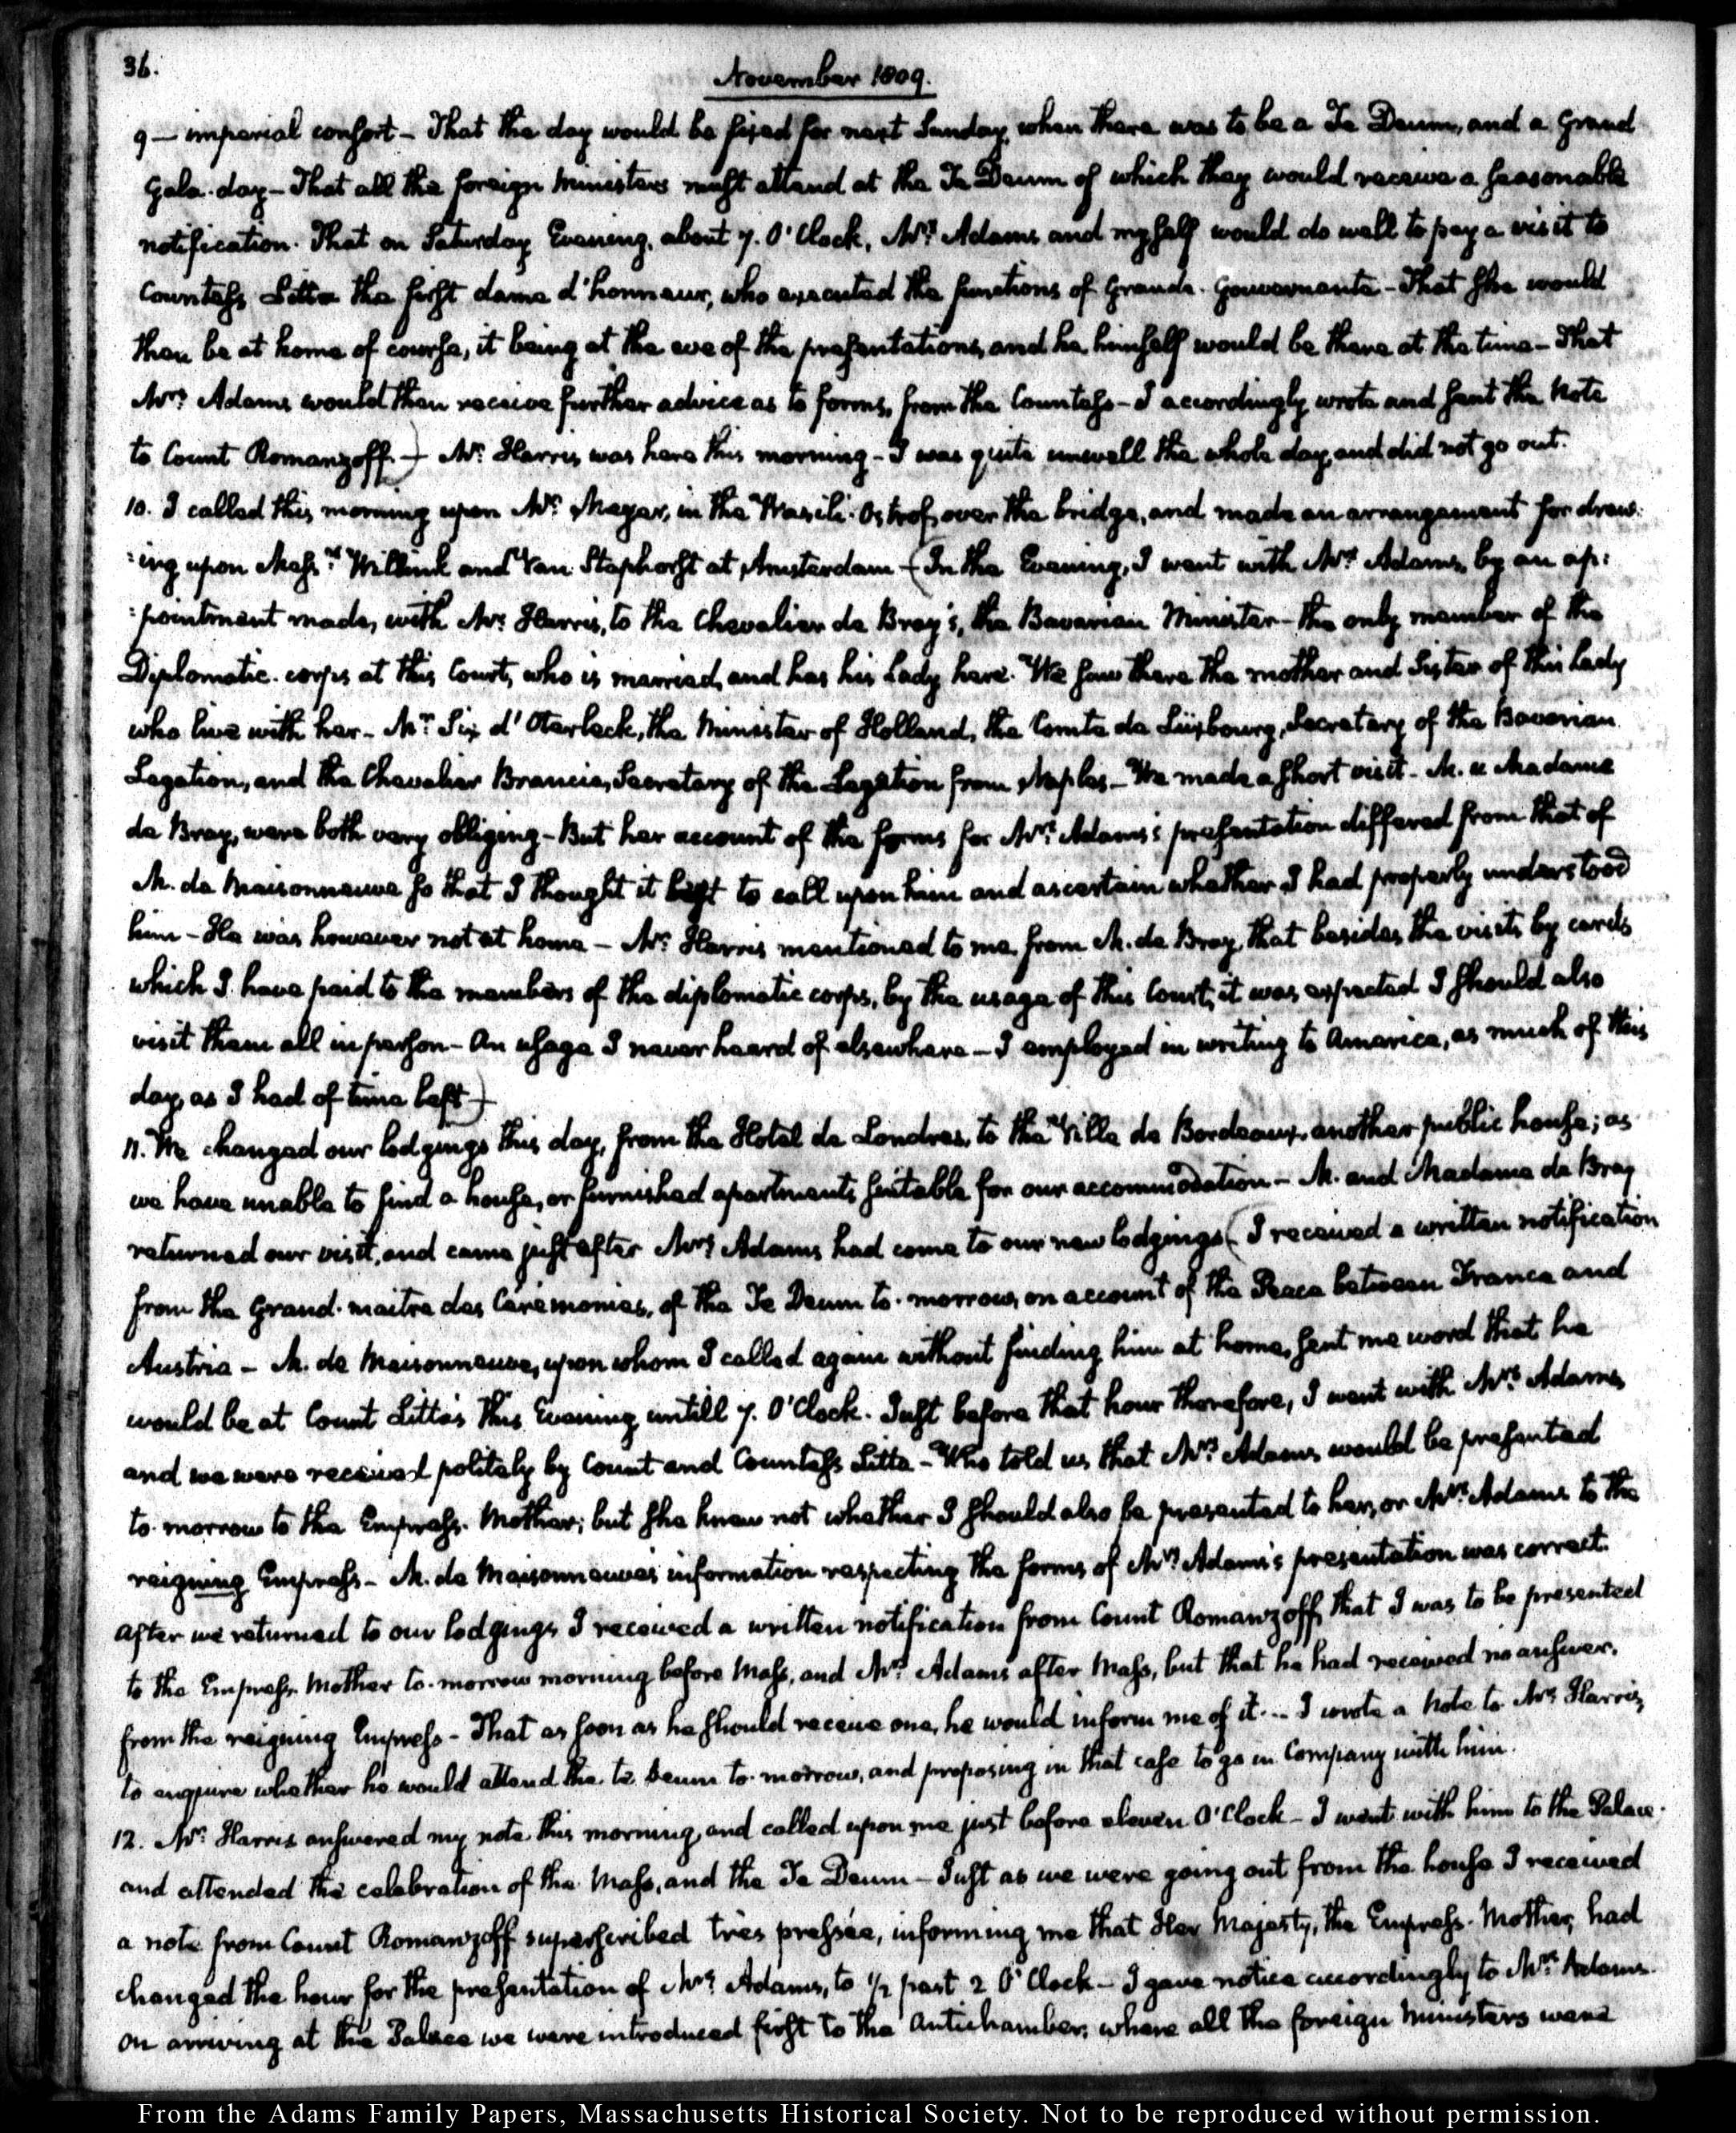 36.
November 1809.
9 — imperial consort — That the day would be fixed for next Sunday, when there was to be a Te Deum, and a grand
Gala-day — That all the foreign Ministers must attend at the Te Deum of which they would receive a seasonable
notification. That on Saturday Evening, about 7. O'Clock, Mrs. Adams and myself would do well to pay a visit to
Countess Litta the first dame d'honneur, who executed the functions of Grande-Gouvernante — That she would
then be at home of course, it being at the eve of the presentations, and he himself would be there at the time — That
Mrs. Adams would then receive further advice as to forms, from the Countess — I accordingly wrote and sent the Note
to Count Romanzoff.) — Mr. Harris was here this morning — I was quite unwell the whole day, and did not go out.
10. I called this morning upon Mr. Meyer, in the Wasili-Ostrof, over the bridge, and made an arrangement for draw-
:ing upon Messrs. Willink and Van Staphorst at Amsterdam — (In the Evening, I went with Mrs. Adams, by an ap:
:pointment made, with Mr. Harris, to the Chevalier de Bray's, the Bavarian Minister — the only member of the
Diplomatic-corps at this Court, who is married, and has his Lady here. We saw there the mother and Sister of this Lady
who live with her — Mr. Six d'Oterbeck, the Minister of Holland, the Comte de Luxbourg, Secretary of the Bavarian
Legation, and the Chevalier Brancia, Secretary of the Legation from Naples — We made a short visit — M. & Madame
de Bray, were both very obliging — But her account of the forms for Mrs. Adams's presentation differed from that of
M. de Maisonneuve so that I thought it best to call upon him and ascertain whether I had properly understood
him — He was however not at home — Mr. Harris mentioned to me from M. de Bray, that besides the visits by cards
which I have paid to the members of the diplomatic corps, by the usage of this Court, it was expected I should also
visit them all in person — An usage I never heard of elsewhere — I employed in writing to America, as much of this
day, as I had of time left.)
11. We changed our lodgings this day, from the Hotel de Londres, to the Ville de Bordeaux, another public house; as
we have unable to find a house, or furnished apartments suitable for our accommodation — M. and Madame de Bray
returned our visit, and came just after Mrs. Adams had come to our new lodgings (I received a written notification
from the Grand-maitre des Ceremonies, of the Te Deum to-morrow, on account of the Peace between France and
Austria — M. de Maisonneuve, upon whom I called again without finding him at home, sent me word that he
would be at Count Litta's this Evening untill 7. O'Clock. Just before that hour therefore, I went with Mrs. Adams,
and we were received politely by Count and Countess Litta — Who told us that Mrs. Adams would be presented
to-morrow to the Empress-Mother; but she knew not whether I should also be presented to her, or Mrs. Adams to the
reigning Empress — M. de Maisonneuve's information respecting the forms of Mrs. Adams's presentation was correct.
After we returned to our lodgings I received a written notification from Count Romanzoff, that I was to be presented
to the Empress Mother to-morrow morning before Mass, and Mrs. Adams after Mass, but that he had received no answer,
from the reigning Empress — That as soon as he should receive one, he would inform me of it... I wrote a Note to Mr. Harris,
to enquire whether he would attend the te Deum to-morrow, and proposing in that case to go in Company with him.
12. Mr. Harris answered my note this morning, and called upon me just before eleven O'Clock — I went with him to the Palace.
and attended the celebration of the Mass, and the Te Deum — Just as we were going out from the house I received
a note from Count Romanzoff superscribed très pressée, informing me that Her Majesty, the Empress-Mother, had
changed the hour for the presentation of Mrs. Adams, to 1/2 past 2 O'Clock — I gave notice accordingly to Mrs. Adams.
On arriving at the Palace we were introduced first to the Antichamber, where all the foreign Ministers were
From the Adams Family Papers, Massachusetts Historical Society. Not to be reproduced without permission.